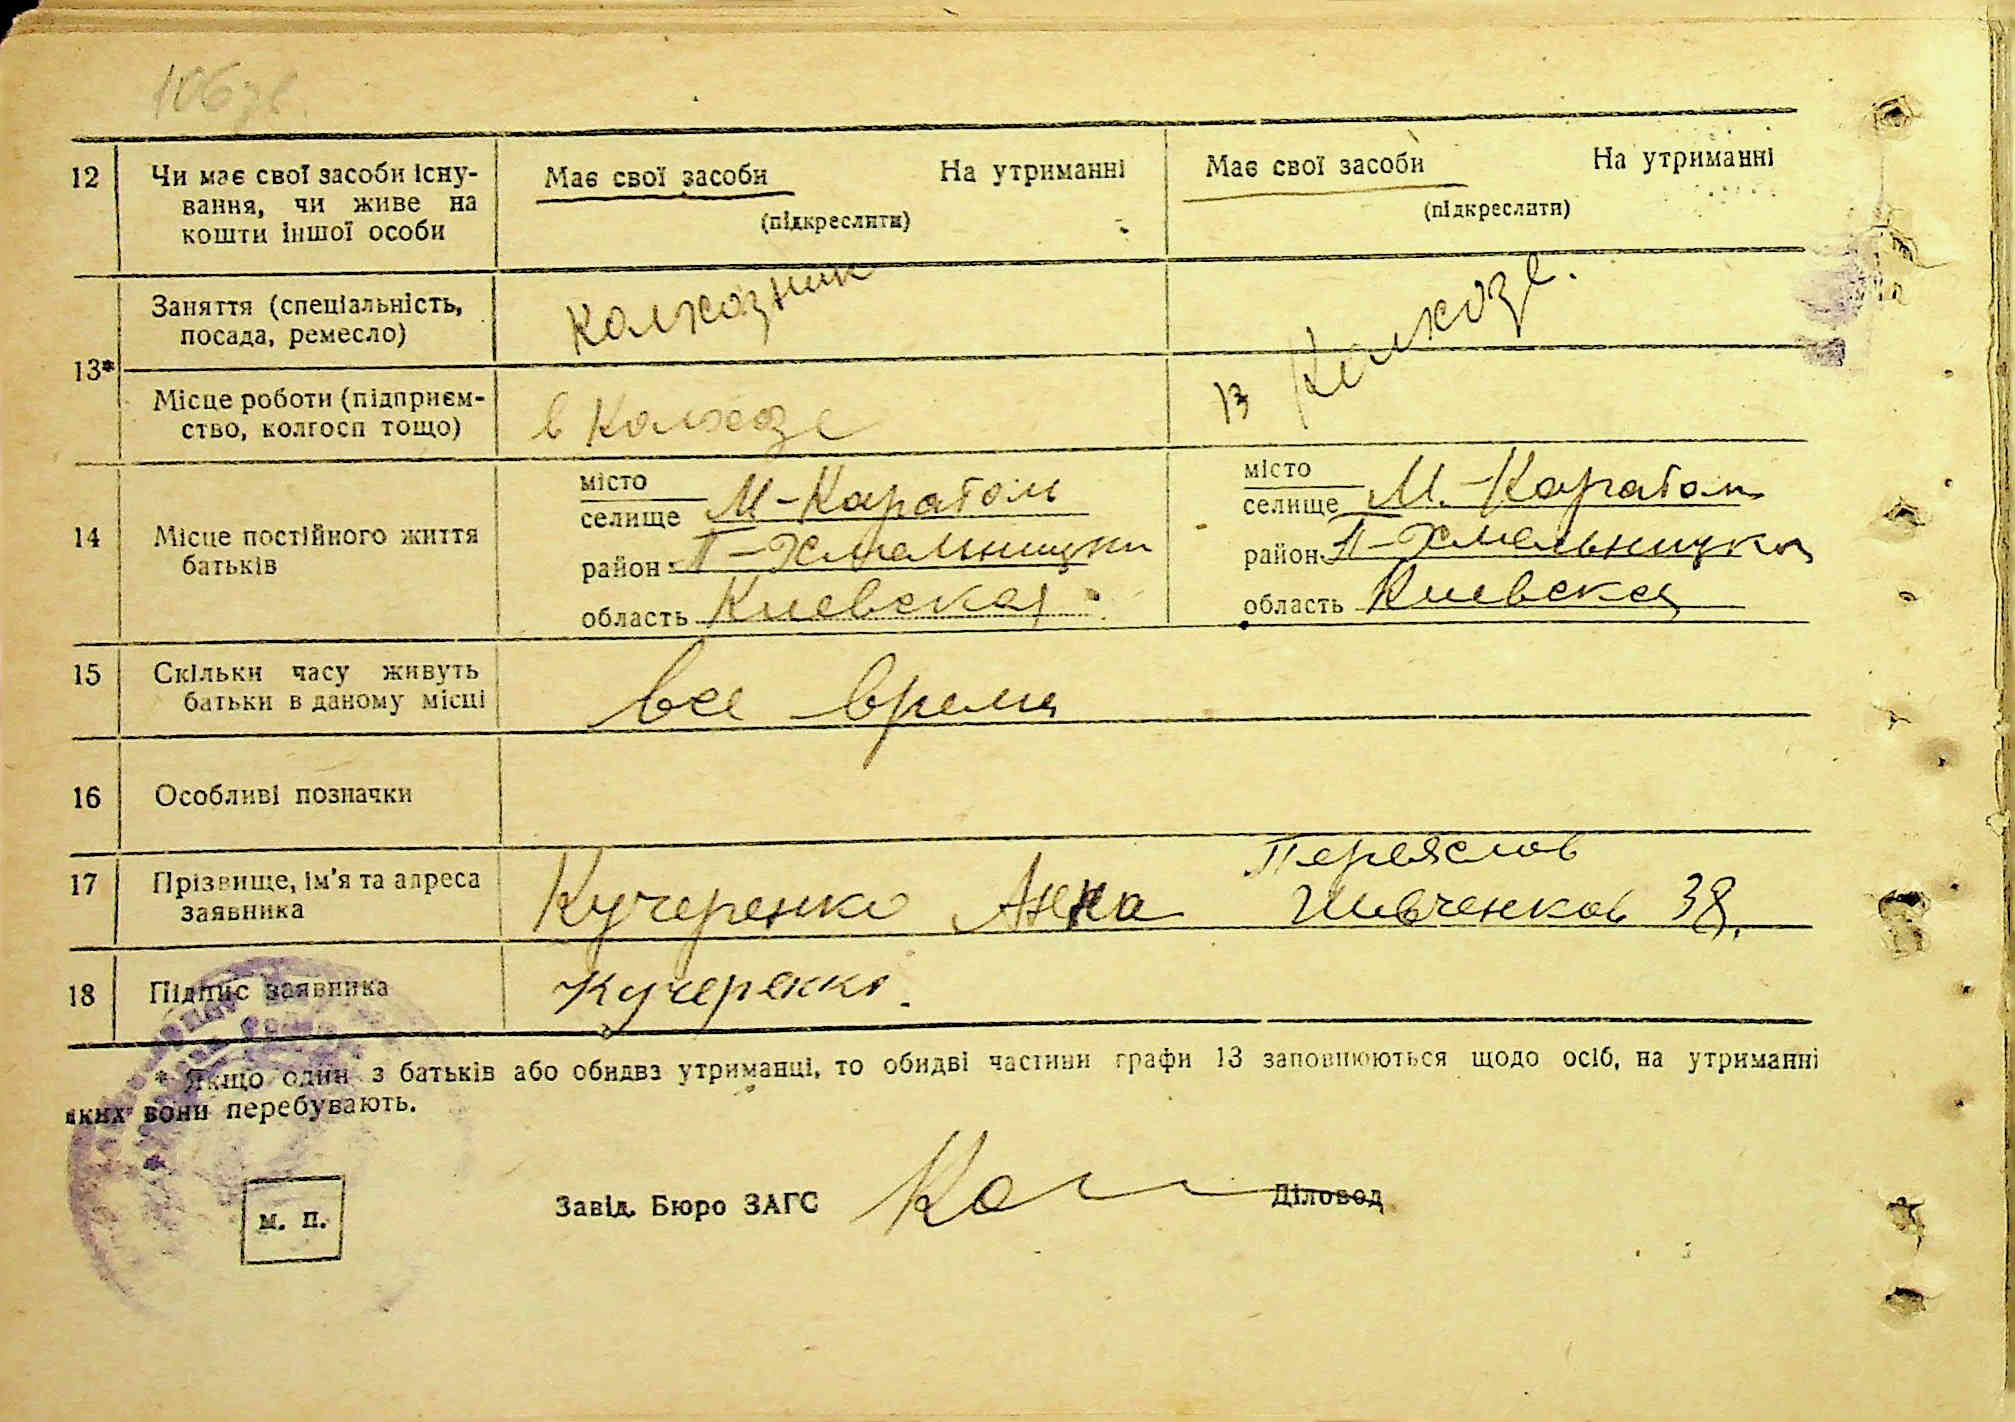 106зв
12 Чи має свої засоби існу-
вання, чи живе на
кошти іншої особи
Має свої засоби На утриманні
(підкреслити)
Має свої засоби На утриманні
(підкреслити)
13*
Заняття (спеціальність,
посада, ремесло)
Колхозник
Місце роботи (підприєм-
ство, колгосп тощо)
в Колхозе
в Колхозе.
14 Місце постійного життя
батьків
місто
селище М-Каратом
район П-Хмельницки
область Киевская
місто
селище М.-Каратом
район П-Хмельницки
область Киевская
15 Скільки часу живуть
батьки в даному місці
все время
16 Особливі позначки
17 Прізвище, ім'я та адреса
заявника
Переяслов
Кучеренко Анна Шевченков 38.
18 Підпис заявника
Кучеренко.
* Якщо один з батьків або обидва утриманці, то обидві частини графи 13 заповнюються щодо осіб, на утриманні
яких вони перебувають.
м. п.
Завід. Бюро ЗАГС Діловод